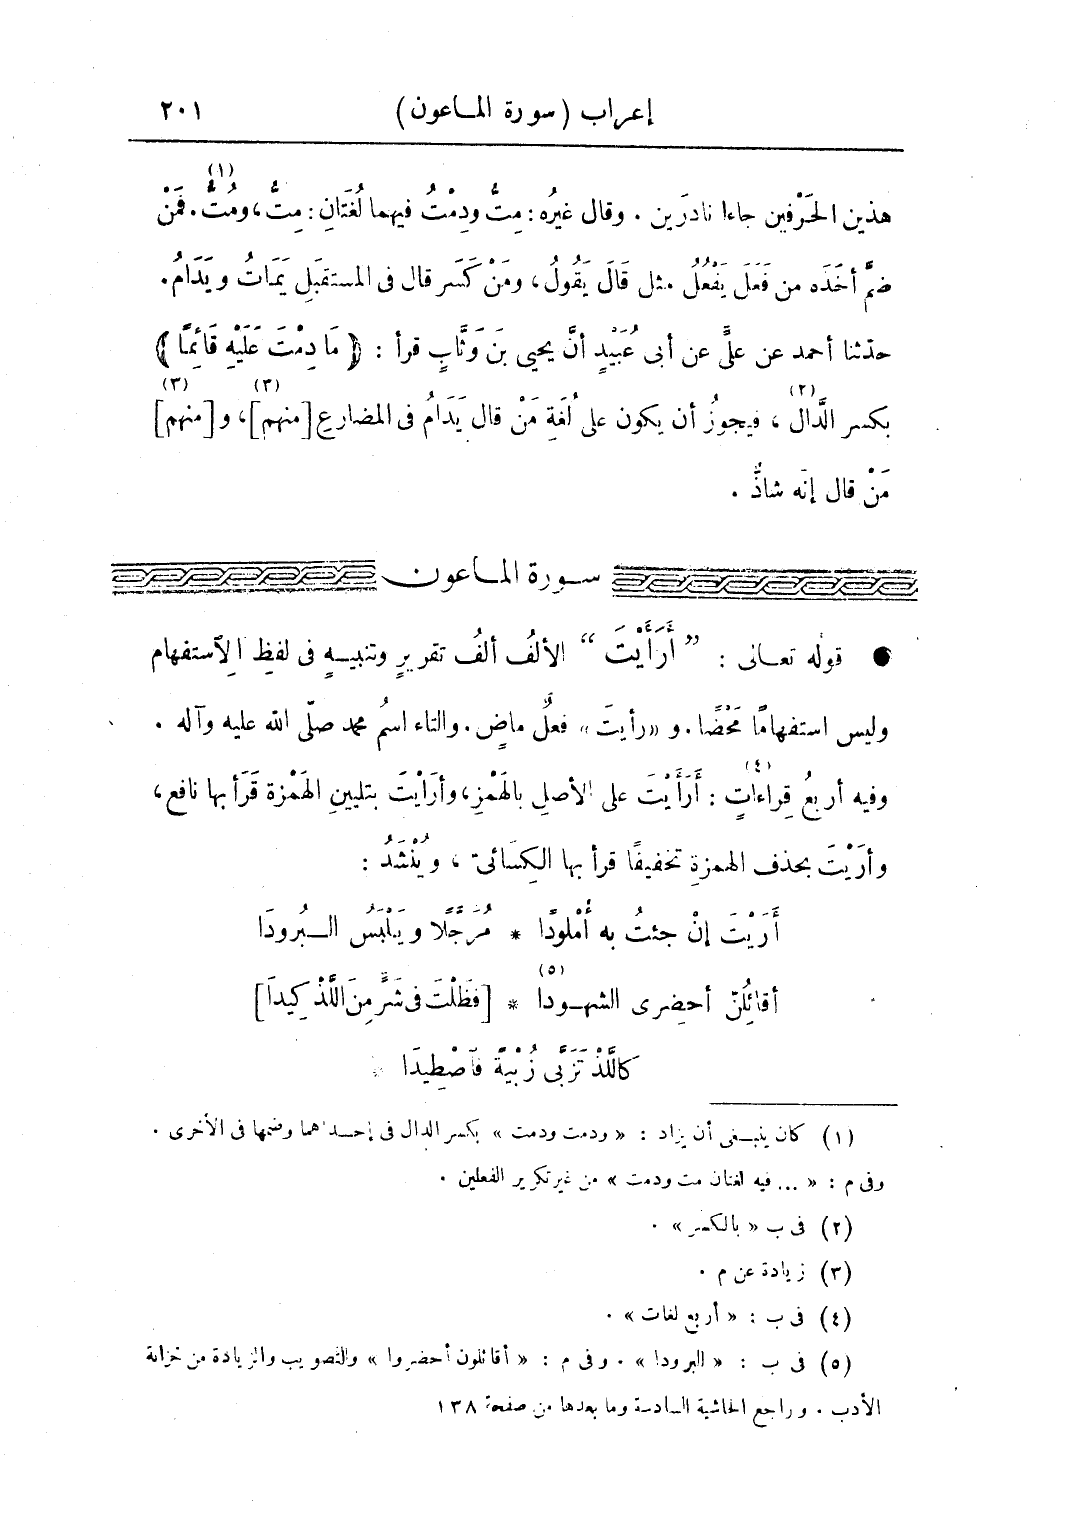 إعراب (سورة الماعون) ٢٠١
هذين الحَرْفين جاءا نادرَين . وقال غيرُه : مِتُّ ودِمْتُ فيهما لُغَتَانِ : مِتُّ ، ومُتُّ . (١) فَمَنْ
ضمَّ أخَذَه من فَعَلَ يَفْعُلُ مثل قَالَ يَقُولُ ، ومَنْ كَسَر قال فى المستقبَلِ يَمَاتُ ويَدَامُ .
حدّثنا أحمد عن علىٍّ عن أبى عُبَيْدٍ أنَّ يحيى بن وَثَّابٍ قرأ : ﴿ مَا دِمْتَ عَلَيْهِ قَائِمًا ﴾
بكسر الدَّال (٢) ، فيجوزُ أن يكون على لُغَةِ مَنْ قال يَدَامُ فى المضارع [منهم] (٣) ، و [منهم] (٣)
مَنْ قال إنّه شاذٌّ .
سورة الماعون
● قولُه تعالى : ” أَرَأَيْتَ “ الألفُ ألفُ تقريرٍ وتنبيهٍ فى لفظِ الِاستفهام
وليس استفهامًا مَحْضًا . و «رأيتَ» فعلٌ ماضٍ . والتاء اسمُ محمد صلّى الله عليه وآله .
وفيه أربعُ قِراءاتٍ (٤) : أَرَأَيْتَ على الأصلِ بالهَمْزِ ، وأرَايْتَ بتليينِ الهَمْزة قَرَأ بها نافع ،
وأرَيْتَ بحذف الهمزةِ تخفيفًا قرأ بها الكِسَائىّ ، ويُنْشَدُ :
أَرَيْتَ إنْ جئتُ به أُمْلودًا * مُرَجَّلًا ويَلْبَسُ البُرودَا
أقائِلُنّ أحضِرى الشهودا (٥) * [فظَلْتَ فى شَرٍّ مِنَ اللَّذْ كِيدَا]
كاللَّذْ تَزَبَّى زُبْيَةً فَاصْطِيدَا *
(١) كان ينبغى أن يزاد : « ودمت ودمت » بكسر الدال فى إحداهما وضمها فى الأخرى .
وفى م : « ... فيه لغتان مت ودمت » من غير تكرير الفعلين .
(٢) فى ب « بالكسر » .
(٣) زيادة عن م .
(٤) فى ب : « أربع لغات » .
(٥) فى ب : « البرودا » . وفى م : « أقائلون أحضروا » والتصويب والزيادة من خزانة
الأدب . وراجع الحاشية السادسة وما بعدها من صفحة ١٣٨